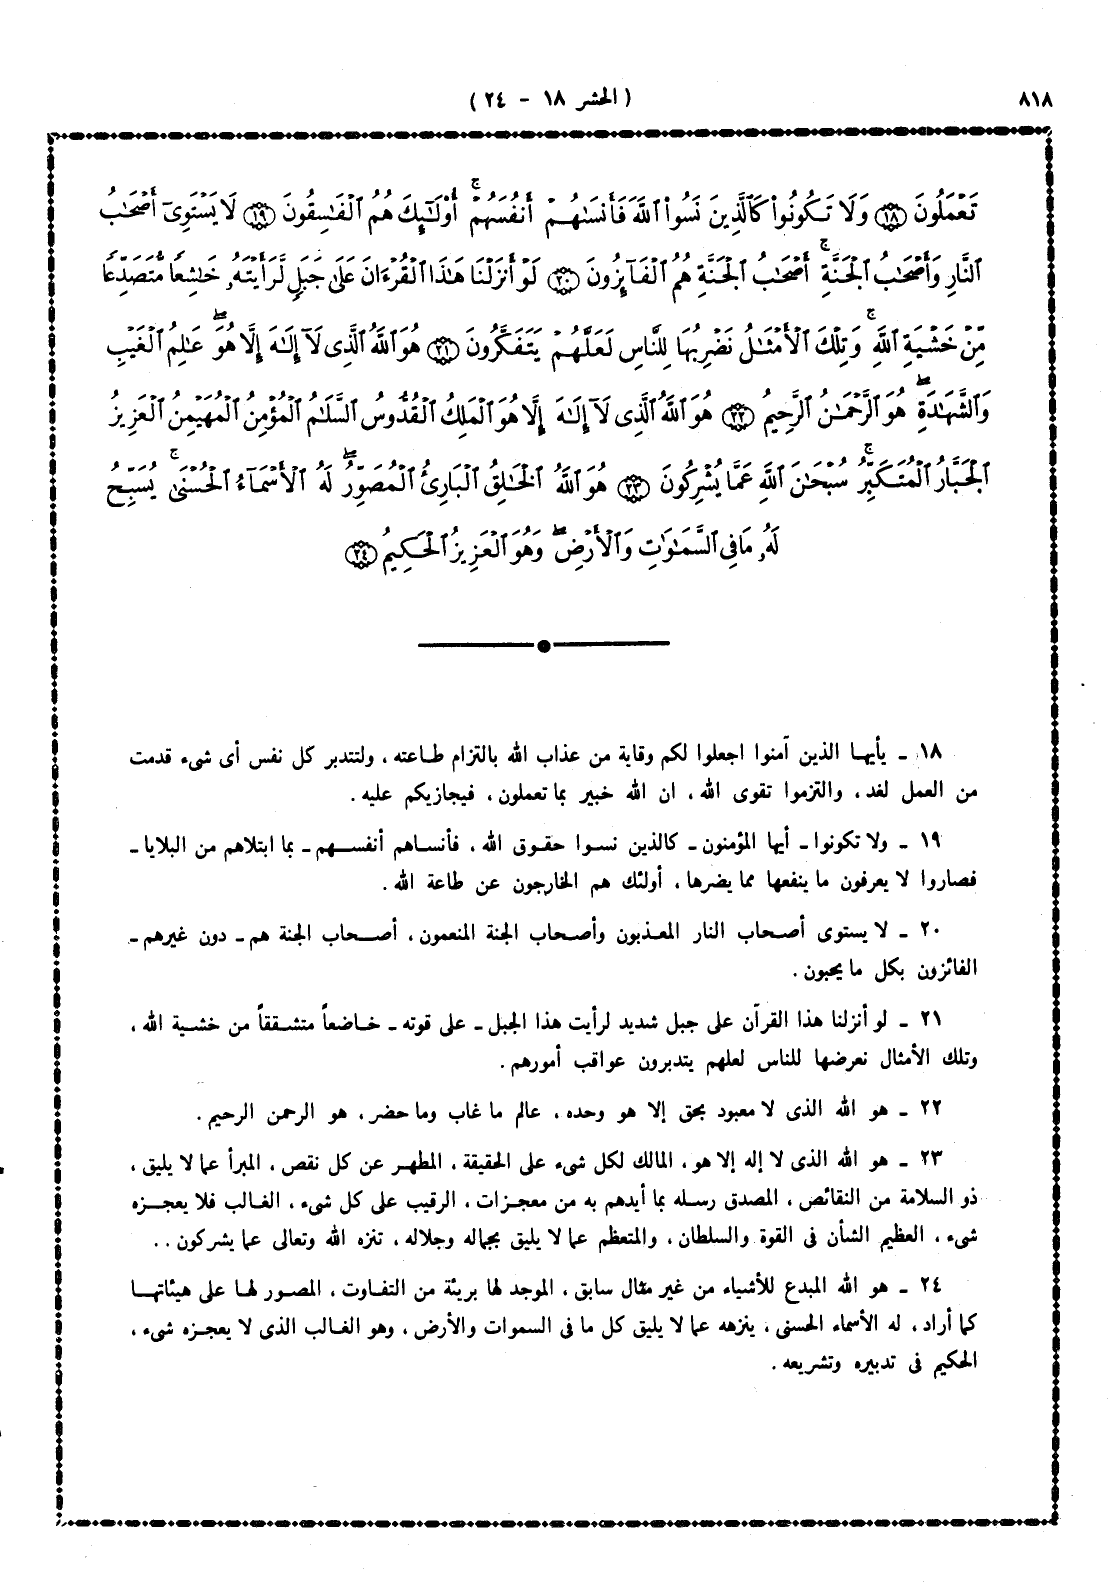 ٨١٨
( الحشر ١٨ - ٢٤ )
تَعْمَلُونَ ﴿١٨﴾ وَلَا تَكُونُوا۟ كَٱلَّذِينَ نَسُوا۟ ٱللَّهَ فَأَنسَىٰهُمْ أَنفُسَهُمْ ۚ أُو۟لَـٰٓئِكَ هُمُ ٱلْفَـٰسِقُونَ ﴿١٩﴾ لَا يَسْتَوِىٓ أَصْحَـٰبُ
ٱلنَّارِ وَأَصْحَـٰبُ ٱلْجَنَّةِ ۚ أَصْحَـٰبُ ٱلْجَنَّةِ هُمُ ٱلْفَآئِزُونَ ﴿٢٠﴾ لَوْ أَنزَلْنَا هَـٰذَا ٱلْقُرْءَانَ عَلَىٰ جَبَلٍ لَّرَأَيْتَهُۥ خَـٰشِعًا مُّتَصَدِّعًا
مِّنْ خَشْيَةِ ٱللَّهِ ۚ وَتِلْكَ ٱلْأَمْثَـٰلُ نَضْرِبُهَا لِلنَّاسِ لَعَلَّهُمْ يَتَفَكَّرُونَ ﴿٢١﴾ هُوَ ٱللَّهُ ٱلَّذِى لَآ إِلَـٰهَ إِلَّا هُوَ ۖ عَـٰلِمُ ٱلْغَيْبِ
وَٱلشَّهَـٰدَةِ ۖ هُوَ ٱلرَّحْمَـٰنُ ٱلرَّحِيمُ ﴿٢٢﴾ هُوَ ٱللَّهُ ٱلَّذِى لَآ إِلَـٰهَ إِلَّا هُوَ ٱلْمَلِكُ ٱلْقُدُّوسُ ٱلسَّلَـٰمُ ٱلْمُؤْمِنُ ٱلْمُهَيْمِنُ ٱلْعَزِيزُ
ٱلْجَبَّارُ ٱلْمُتَكَبِّرُ ۚ سُبْحَـٰنَ ٱللَّهِ عَمَّا يُشْرِكُونَ ﴿٢٣﴾ هُوَ ٱللَّهُ ٱلْخَـٰلِقُ ٱلْبَارِئُ ٱلْمُصَوِّرُ ۖ لَهُ ٱلْأَسْمَآءُ ٱلْحُسْنَىٰ ۚ يُسَبِّحُ
لَهُۥ مَا فِى ٱلسَّمَـٰوَٰتِ وَٱلْأَرْضِ ۖ وَهُوَ ٱلْعَزِيزُ ٱلْحَكِيمُ ﴿٢٤﴾
١٨ ـ يأيها الذين آمنوا اجعلوا لكم وقاية من عذاب الله بالتزام طاعته ، ولتتدبر كل نفس أى شىء قدمت
من العمل لغد ، والتزموا تقوى الله ، ان الله خبير بما تعملون ، فيجازيكم عليه .
١٩ ـ ولا تكونوا ـ أيها المؤمنون ـ كالذين نسوا حقوق الله ، فأنساهم أنفسهم ـ بما ابتلاهم من البلايا ـ
فصاروا لا يعرفون ما ينفعها مما يضرها ، أولئك هم الخارجون عن طاعة الله .
٢٠ ـ لا يستوى أصحاب النار المعذبون وأصحاب الجنة المنعمون ، أصحاب الجنة هم ـ دون غيرهم ـ
الفائزون بكل ما يحبون .
٢١ ـ لو أنزلنا هذا القرآن على جبل شديد لرأيت هذا الجبل ـ على قوته ـ خاضعاً متشققاً من خشية الله ،
وتلك الأمثال نعرضها للناس لعلهم يتدبرون عواقب أمورهم .
٢٢ ـ هو الله الذى لا معبود بحق إلا هو وحده ، عالم ما غاب وما حضر ، هو الرحمن الرحيم .
٢٣ ـ هو الله الذى لا إله إلا هو ، المالك لكل شىء على الحقيقة ، المطهر عن كل نقص ، المبرأ عما لا يليق ،
ذو السلامة من النقائص ، المصدق رسله بما أيدهم به من معجزات ، الرقيب على كل شىء ، الغالب فلا يعجزه
شىء ، العظيم الشأن فى القوة والسلطان ، والمتعظم عما لا يليق بجماله وجلاله ، تنزه الله وتعالى عما يشركون . .
٢٤ ـ هو الله المبدع للأشياء من غير مثال سابق ، الموجد لها بريئة من التفاوت ، المصور لها على هيئاتها
كما أراد ، له الأسماء الحسنى ، ينزهه عما لا يليق كل ما فى السموات والأرض ، وهو الغالب الذى لا يعجزه شىء ،
الحكيم فى تدبيره وتشريعه .